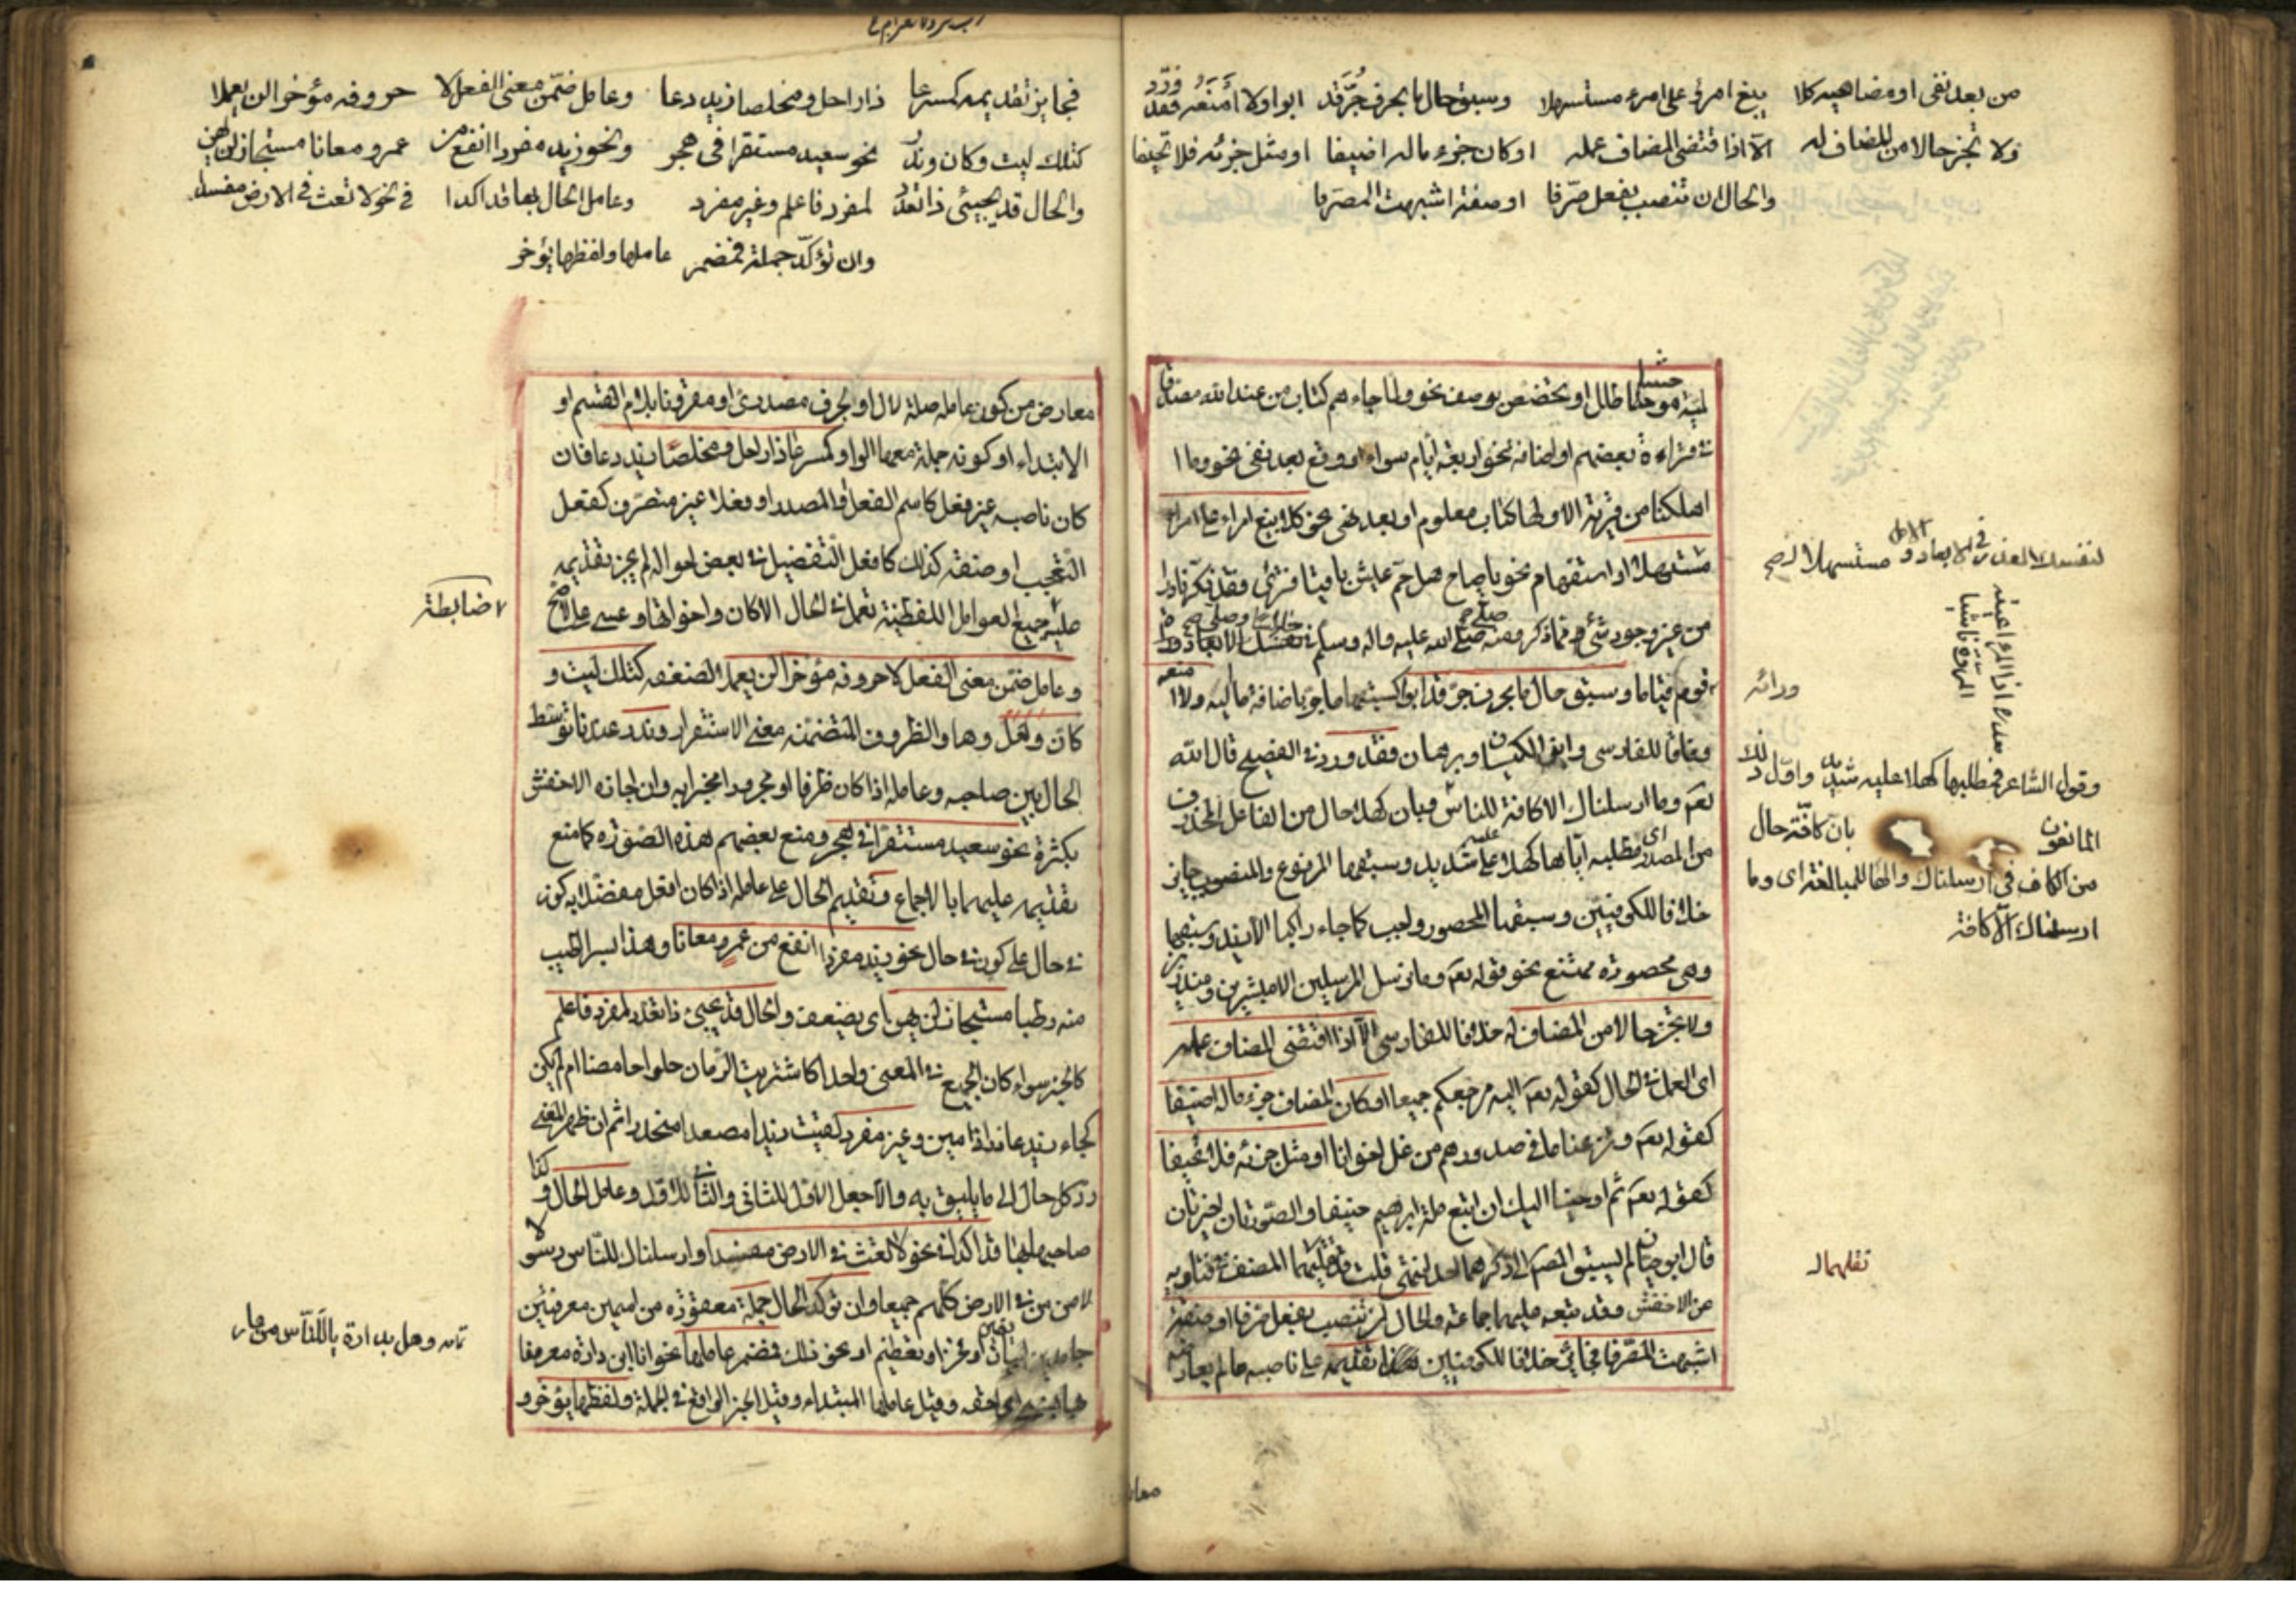 من بعد نفى او مضاهيه كلا يبغ امرؤ على امرء مستسهلا وسبق حال ما بحرف جر قد ابوا ولا امنعه فقد ورد
ولا تجز حالا من المضاف له الا اذا اقتضى المضاف عمله او كان جزء ما له اضيفا او مثل جزئه فلا تحيفا
والحال ان تنصب بفعل صرفا او صفة اشبهت المصرفا
لمية موحشا طلل او يختصص بوصف نحو ولما جاءهم كتاب من عند الله مصدقا
فى قراءة بعضهم او اضافة نحو اربعة ايام سواء او وقع بعد نفى نحو وما ا
اهلكنا من قرية الا ولها كتاب معلوم او بعد نهى نحو كلا يبغ امرء على امرء
مستسهلا او استفهام نحو يا صاح هل حم عيش باقيا فترى وقد نكر نادرا
من غير وجود شئ مما ذكر ومنه صلى الله عليه واله وسلم
قوم قياما وسبق حال ما بحرف جر قد ابوا كسبقها ما جر باضافة ما اليه ولا ا منعه
وفاقا للفارسى وابنى الكيسان وبرهان فقد ورد فى الفصيح قال الله
تعم وما ارسلناك الا كافة للناس وبان كهلا حال من الفاعل المحذوف
من المصدر اى مطلبه اياها كهلا عليه شديد وسبقها المرفوع والمنصوب جايز
خلافا للكوفيين وسبقها المحصور واجب كما جاء راكبا الا زيد وسبقها
وهى محصورة ممتنع نحو قوله تعم وما نرسل المرسلين الا مبشرين ومنذرين
ولا تجز حالا من المضاف له خلافا للفارسى الا اذا اقتضى المضاف عمله
اى العمل فى الحال كقوله تعم اليه مرجعكم جميعا او كان المضاف جزء ما له اضيفا
كقوله تعم ونزعنا ما فى صدورهم من غل اخوانا او مثل جزئه فلا تحيفا
كقوله تعم ثم اوحينا اليك ان اتبع ملة ابرهيم حنيفا والصورتان اخيرتان
قال ابو حيان لم يسبق المص الى ذكرهما احد انتهى قلت قد نقلهما المصنف فى فتاويه
عن الاخفش وقد تبعه عليهما جماعة والحال ان تنصب بفعل صرفا او صفة
اشبهت المصرفا فجائز خلافا للكوفيين تقديمه على ناصبه ما لم يعارضه
مستسهلا
ورائه
وقول الشاعر فمطلبها كهلا عليه شديد واول ذلك
المانعون بان كافة حال
من الكاف فى ارسلناك والهاء للمبالغة اى وما
ارسلناك الا كافة
نقلهما
معار
فجايز تقديمه كمسرعا ذا راحل ومخلصا زيد دعا وعامل ضمن معنى الفعل لا حروفه مؤخرا لن يعملا
كتلك ليت وكان وندر نحو سعيد مستقرا فى هجر ونحو زيد مفردا انفع من عمرو معانا مستجاز لن يهن
والحال قد يجيئ ذا تعدد لمفرد فاعلم وغير مفرد وعامل الحال بها قد اكدا فى نحو لا تعث فى الارض مفسدا
وان تؤكد جملة فمضمر عاملها ولفظها يؤخر
معارض من كون عامله صلة لال او لحرف مصدرى او مقرونا بلام القسم او
الابتداء او كونه جملة معها الواو كمسرعا ذا راحل ومخلصا زيد دعا فان
كان ناصبه غير فعل كاسم الفعل او المصدر او فعلا غير متصرف كفعل
التعجب او صفة كذلك كافعل التفضيل فى بعض احواله لم يجز تقديمه
عليه جميع العوامل اللفظية تعمل فى الحال الا كان واخواتها وعسى على الاصح
ضابطة
وعامل ضمن معنى الفعل لا حروفه مؤخرا لن يعملا لضعفه كتلك ليت و
كان ولعل وها والظروف المتضمنة معنى الاستقرار وندر عندنا توسط
الحال بين صاحبه وعامله اذا كان ظرفا او مجرورا مخبرا به وان اجازه الاخفش
بكثرة نحو سعيد مستقرا فى هجر ومنع بعضهم هذه الصورة كما منع
تقديمه عليهما بالاجماع وتقديم الحال على عامله اذا كان افعل مفضلا به كون
فى حال على كون فى حال نحو زيد مفردا انفع من عمرو معانا وهذا بسرا اطيب
منه رطبا مستجاز لن يهن اى يضعف والحال قد يجيئ ذا تعدد لمفرد فاعلم
كالخبر سواء كان الجميع فى المعنى واحدا كاشتريت الرمان حلوا حامضا ام لم يكن
كجاء زيد عاذرا ذا مين وغير مفرد كلقيت زيدا مصعدا منحدرا ثم ان ظهر المعنى
رد كل حال الى ما يليق به والا جعل الاول للثانى والثانى للاول وعامل الحال وكذا
صاحبها بها قد اكدا فى نحو لا تعث فى الارض مفسدا وارسلناك للناس رسولا
لامن من فى الارض كلهم جميعا وان تؤكد الحال جملة معقودة من اسمين معرفتين
جامدين لبيان يقين او فخر او تعظيم او نحو ذلك فمضمر عاملها نحو انا ابن دارة معروفا
بها نسبى اى احقه وقيل عاملها المبتداء وقيل الخبر الواقع فى الجملة ولفظها يؤخر و
وهل بدارة يا للناس من عار